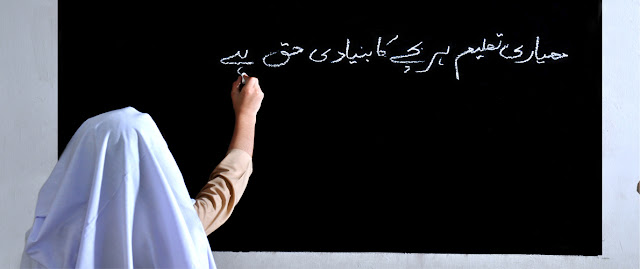 معیاری تعلیم ہر بچے کا بنیادی حق ہے